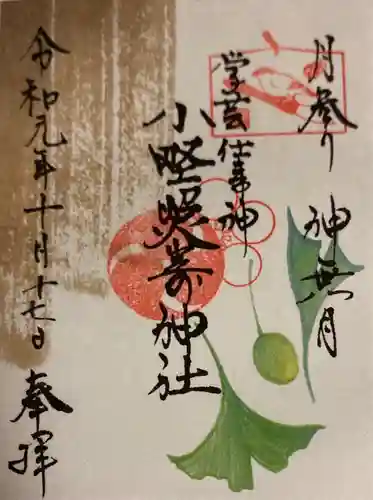 月参り 神無月
学芸 仕事神
小野照崎神社
令和元年十月十七日
奉拝